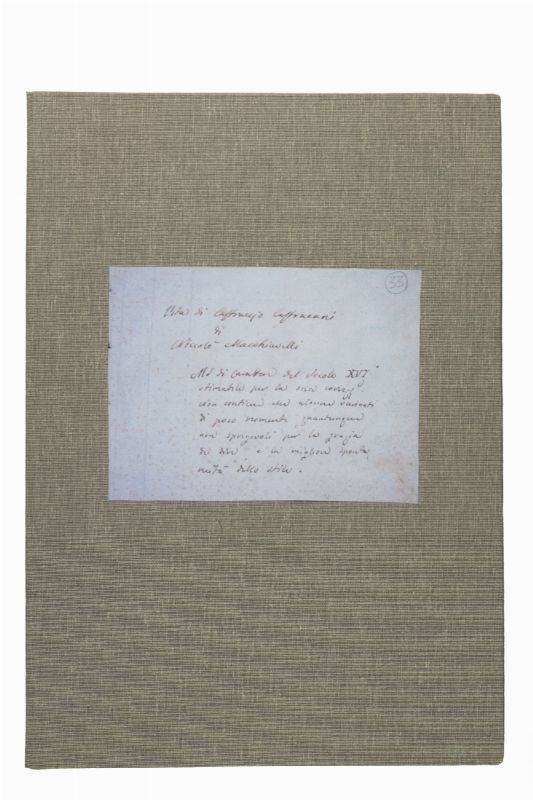 33
Vita di Castruccio Castracani
di
Niccolò Macchiavelli
MS di carattere del Secolo XVI
stimabile per la sua
non contiene che alcune varianti
di poco momento, quantunque
non spregevoli per la grazia
del dire, e la migliore sponta
neità dello stile.